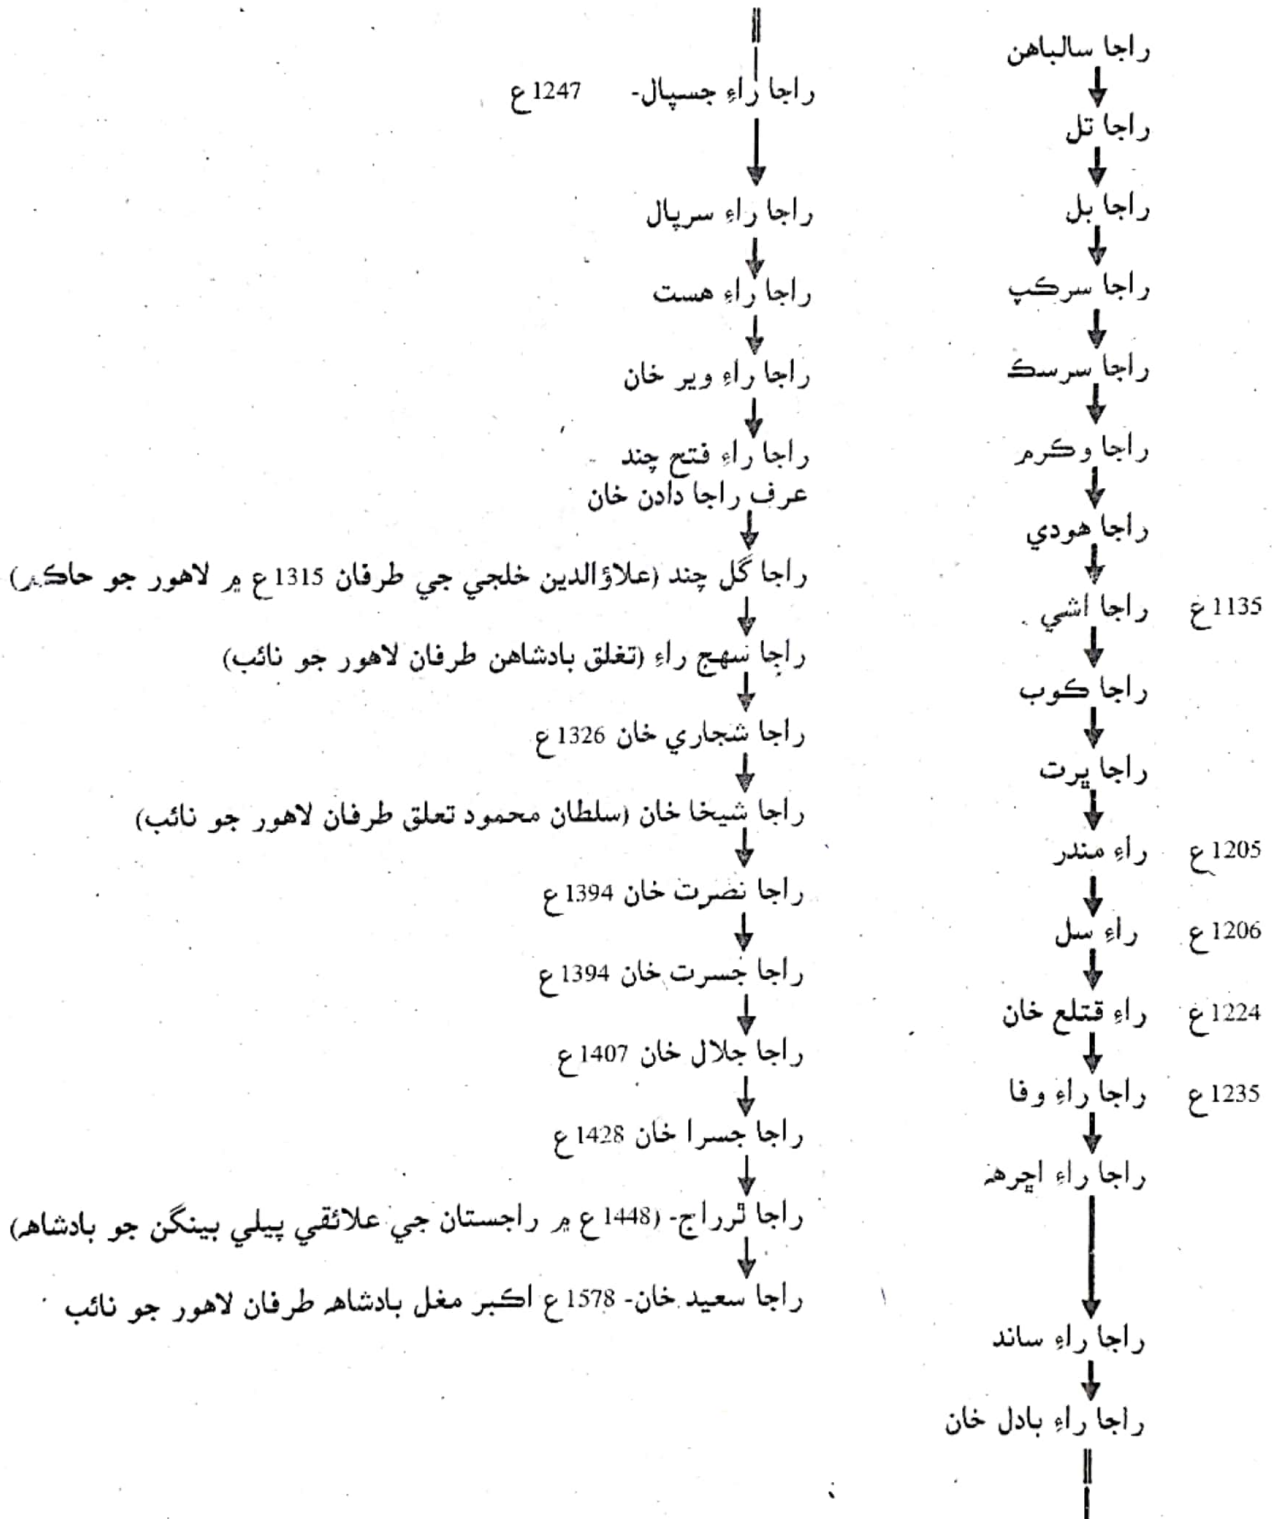 راجا سالباهن
راجا تل
راجا بل
راجا سرڪپ
راجا سرسڪ
راجا وڪرم
راجا هودي
راجا اشي 1135ع
راجا ڪوب
راجا ڀرت
راءِ مندر 1205ع
راءِ سل 1206ع
راءِ قتلع خان 1224ع
راجا راءِ وفا 1235ع
راجا راءِ اڇرهہ
راجا راءِ ساند
راجا راءِ بادل خان
راجا راءِ جسپال- 1247ع
راجا راءِ سرپال
راجا راءِ هست
راجا راءِ وير خان
راجا راءِ فتح چند
عرف راجا دادن خان
راجا گل چند (علاؤالدين خلجي جي طرفان 1315ع ۾ لاهور جو حاڪم)
راجا سهج راءِ (تغلق بادشاهن طرفان لاهور جو نائب)
راجا شجاري خان 1326ع
راجا شيخا خان (سلطان محمود تعلق طرفان لاهور جو نائب)
راجا نصرت خان 1394ع
راجا جسرت خان 1394ع
راجا جلال خان 1407ع
راجا جسرا خان 1428ع
راجا ٿرراج- (1448ع ۾ راجستان جي علائقي پيلي بينگن جو بادشاهہ)
راجا سعيد خان- 1578ع اڪبر مغل بادشاهہ طرفان لاهور جو نائب